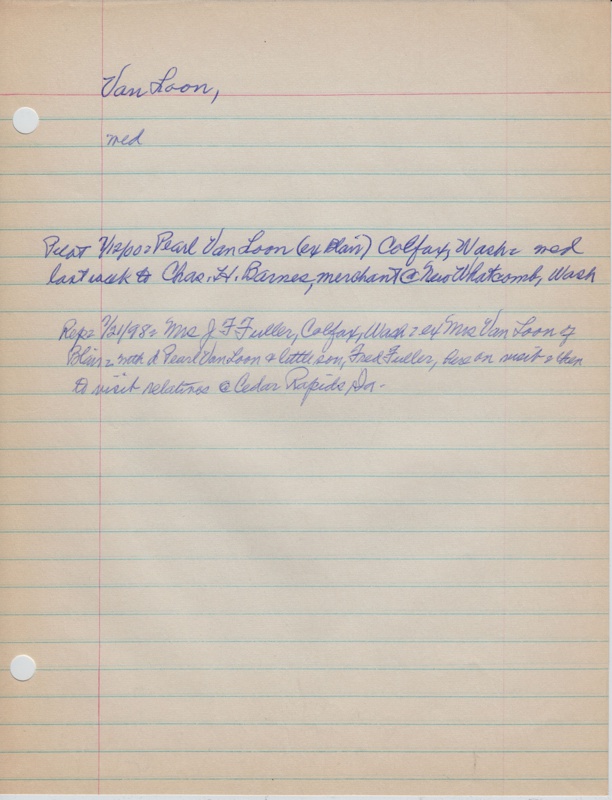 Van Loon,
med
Pilot 7/12/00 = Pearl Van Loon (ex Blair) Colfax, Wash = med
last week to Chas. H. Barnes, merchant @ New Whatcomb, Wash
Rep = 7/21/98 = Mrs J F Fuller, Colfax, Wash = ex Mrs Van Loon of
Blair = with d Pearl Van Loon & little son, Fred Fuller, here on visit & then
to visit relatives @ Cedar Rapids, Ia -